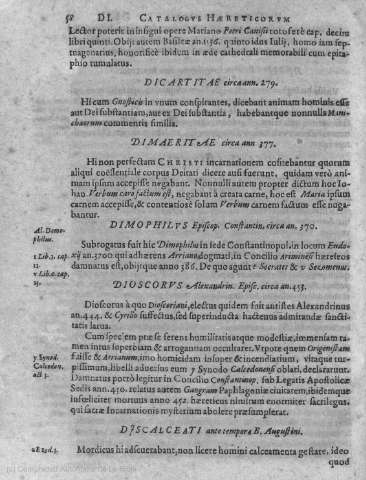 58 DI. CATALOGVS HÆRETICORVM
Lector poterit in insigni opere Mariano Petri Canisii toto ferè cap. decim.
libri quinti. Obijt autem Basileæ an. 1536. quinto idus Iulij, homo iam sep-
tuagenarius, honorificè ibidem in æde cathedrali memorabili cum epita-
phio tumulatus.
DICARTITAE circa ann. 279.
Hi cum Gnosticis in vnum conspirantes, dicebant animam hominis esse
aut Dei substantiam, aut ex Dei substantia, habebantque nonnulla Mani-
chæorum commentis similia.
DIMAERITAE circa ann 377.
Hi non perfectam CHRISTI incarnationem cofitebantur quorum
aliqui coessentiale corpus Deitati dicere ausi fuerunt, quidam verò ani-
mam ipsum accepisse negabant. Nonnulli autem propter dictum hoc Io-
hāo Verbum caro factum est, negabant à creata carne, hoc est Maria ipsum
carnem accepisse, & contentiosè solum Verbum carnem factum esse nega-
bantur.
DIMOPHILVS Episcop. Constantin. circa an. 370.
Al. Demo-
philus.
Subrogatus fuit hic Dimophilus in sede Constantinopol. in locum Eudo-
1 Lib. 2. cap.
xij an. 3700 qui adhærens Arriano dogmati, in Concilio Ariminensi hæreseos
12.
damnatus est, obijtque anno 386. De quo agunt e Socrates & v Sozomenus.
v Lib. 6. cap.
25.
DIOSCORVS Alexandrin. Episc. circa an. 453.
Dioscorus à quo Dioscoriani, electus quidem fuit antistes Alexandrinus
an. 444. & Cyrillo suffectus, sed superinducta hactenus admirandæ sancti-
tatis larua.
Cum speciem præ se ferens humilitatis atque modestiæ, immensam ta-
men intus superbiam & arrogantiam occultaret. Vtpote quem Origenistam
y Synod.
fuisse & Arrianum, imo homicidam insuper & incendiarium, vitaque tur-
Calcedon.
pissimum, libelli aduersus eum y Synodo Calcedonensi oblati, declararunt.
act 3.
Damnatus porrò legitur in Concilio Constantinop. sub Legatis Apostolicæ
Sedis ann. 450. relatus autem Gangram Paphlagoniæ ciuitatem, ibidemque
infeliciter mortuus anno 452. hæreticus nimirum enormiter sacrilegus,
qui sacræ Incarnationis mysterium abolere præsumpserat.
DISCALCEATI ante tempora B. Augustini.
Mordicus hi adseuerabant, non licere homini calceamenta gestare, ideo
quod